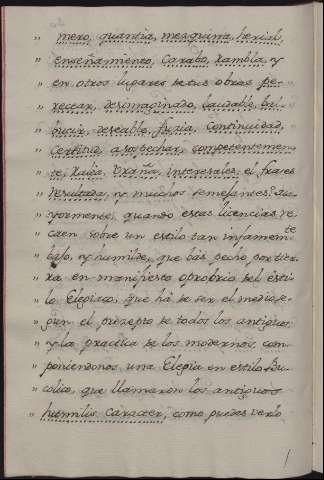 " mero, quantia, mesquina, herial,
" enseñamiento, Carabo, rambla, y
" en otros lugares de tus obras pe-
" recear, desimaginado, laudable, bri-
" , deleable, furia, Continuidad,
" Certitud, asospechar, competentemen-
" te, Laida, Uraña, interesales, el frases
" resultada, y muchos semejantes? Ma-
" yormente, quando estas licencias re-
" caen sobre un estilo tan infamemte
" bajo, y humilde, que bas pecho, por tier-
" ra en manifiesto oprobrio del esti-
" lo Elegiaco, que há de ser el medio, se-
" gun el precepto de todos los antiguos,
" y la practica de los modernos, com-
" poniendonos una Elegia en estilo Bu-
" colico, que llamaron los antiguos
" humilis caracter, como puedes verlo